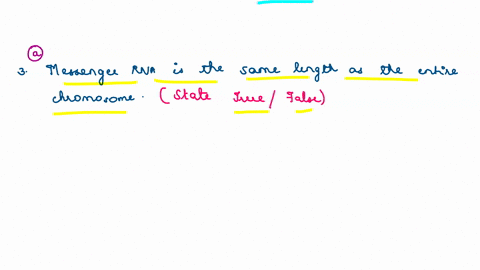 (a)
3. Messenger RNA is the same length as the entire
chromosome. (State True / False)